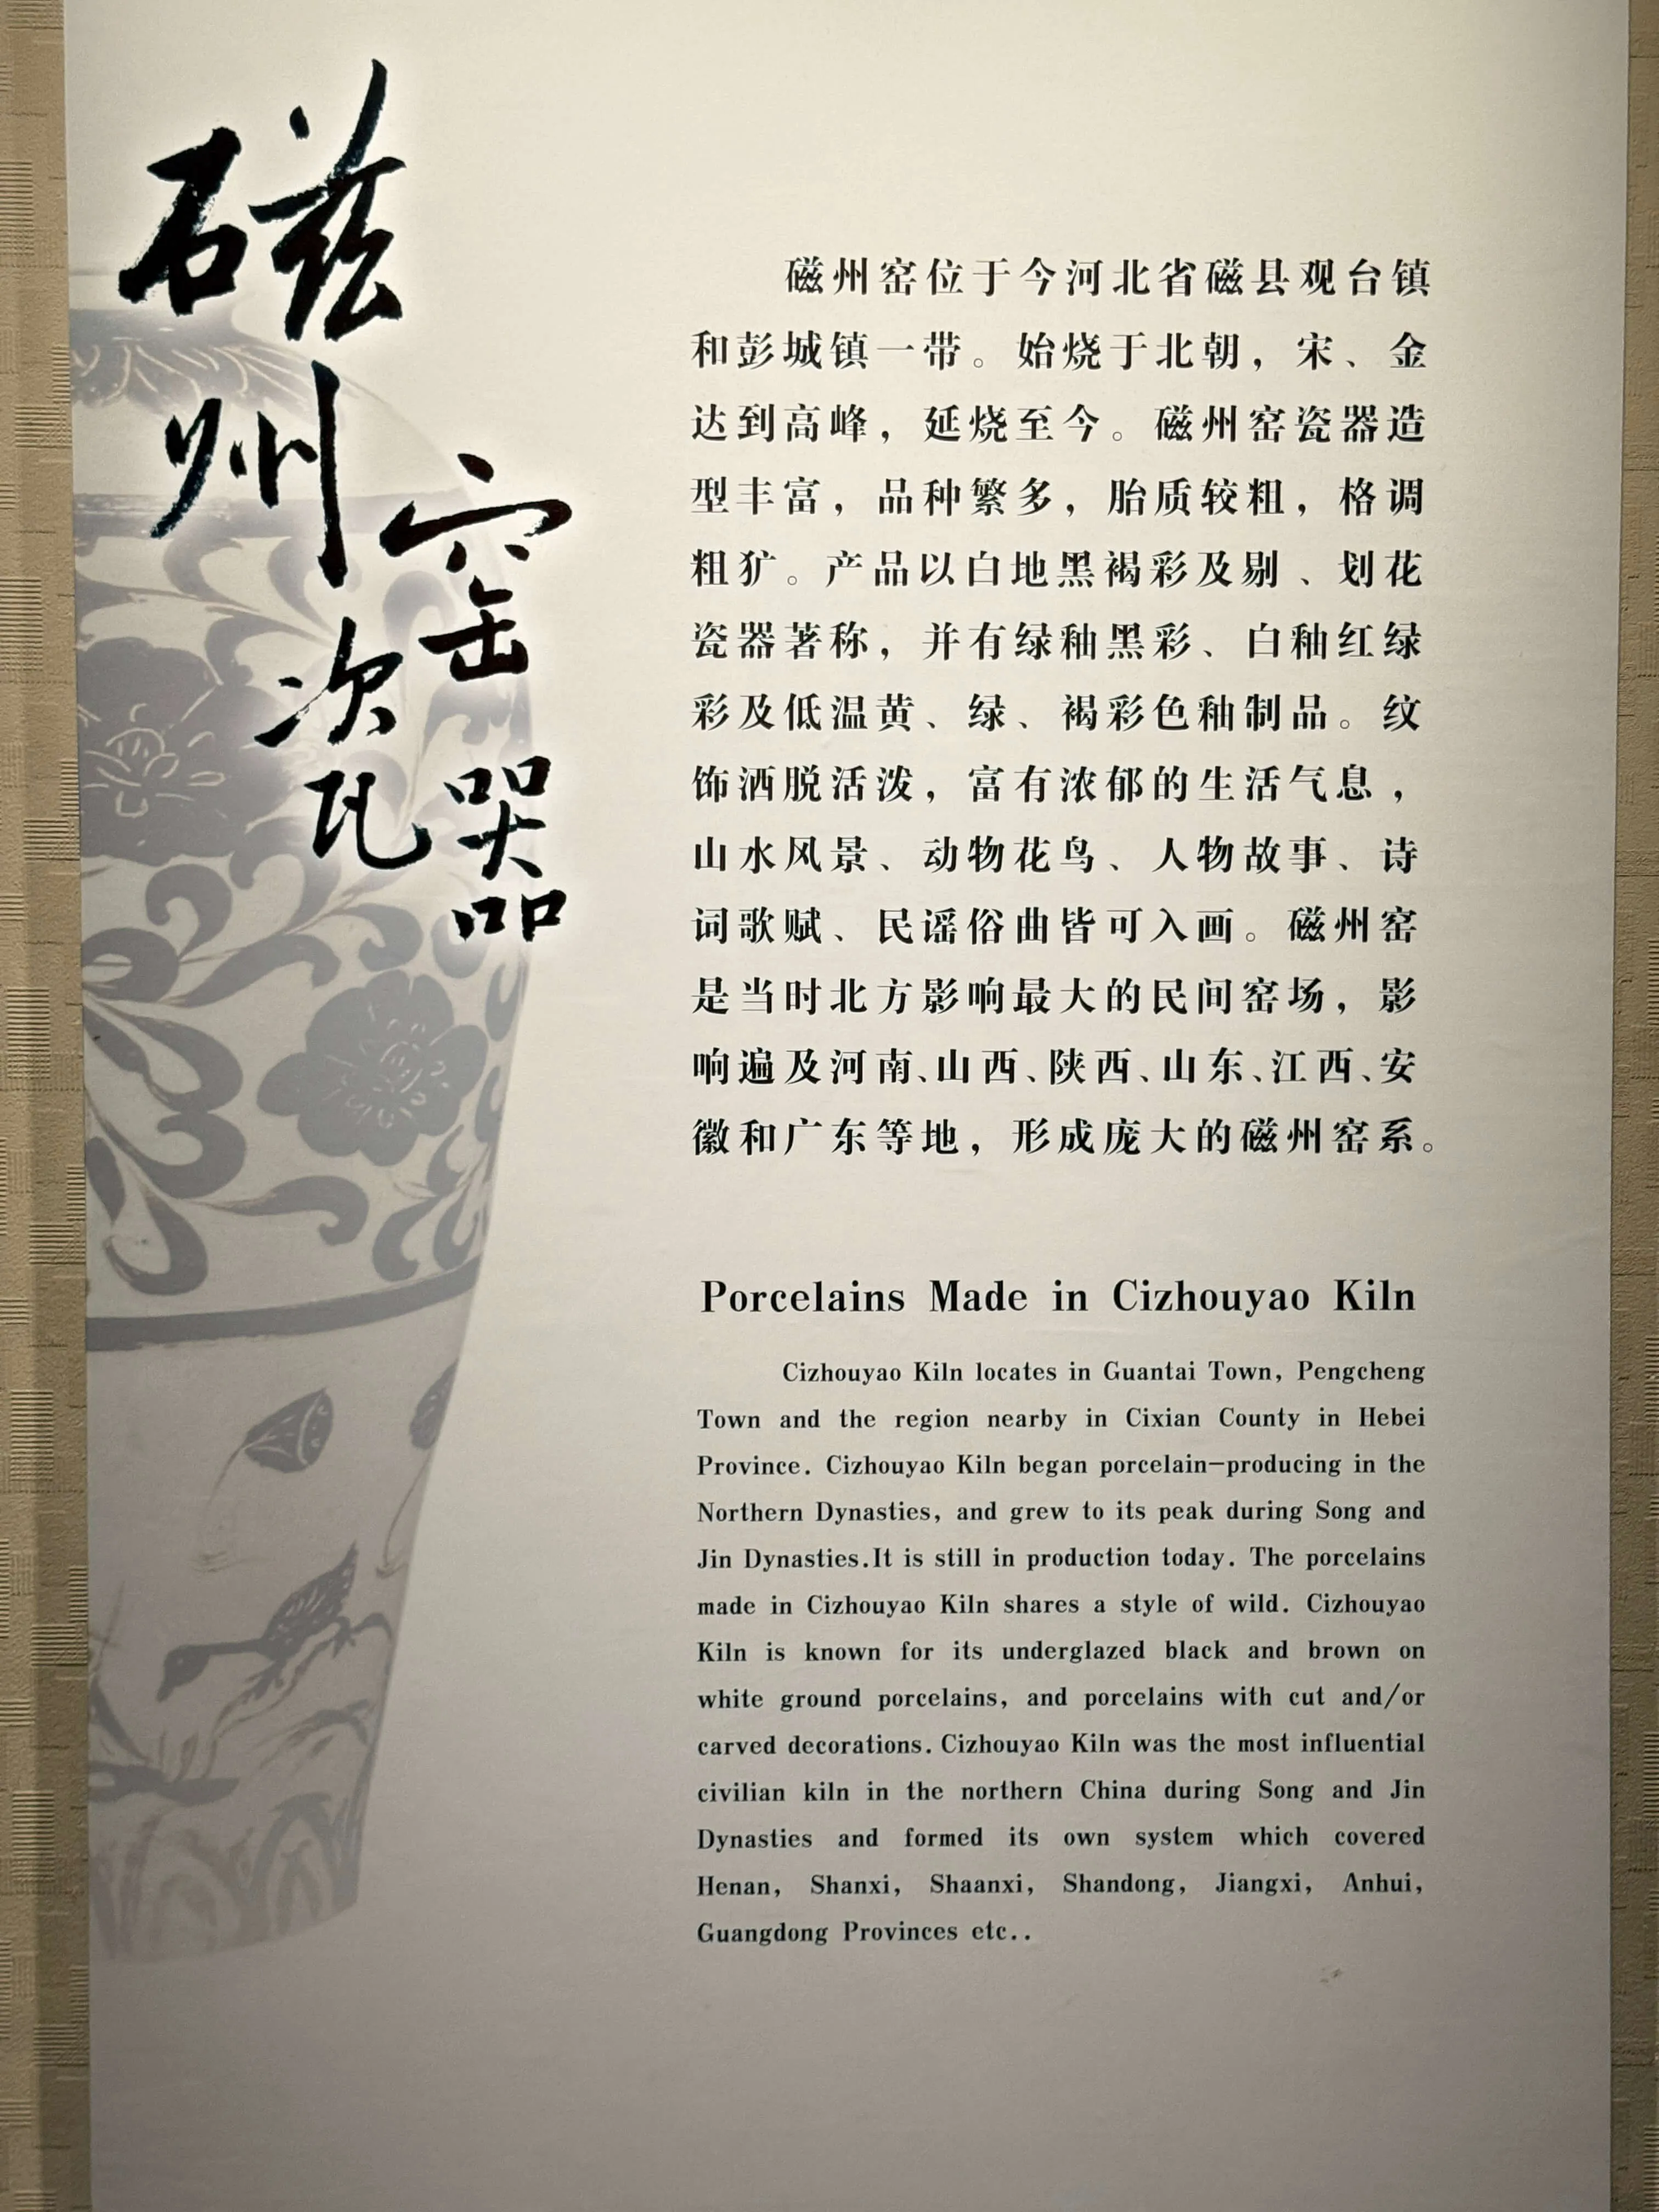 磁州窑瓷器
磁州窑位于今河北省磁县观台镇
和彭城镇一带。始烧于北朝，宋、金
达到高峰，延烧至今。磁州窑瓷器造
型丰富，品种繁多，胎质较粗，格调
粗犷。产品以白地黑褐彩及剔、划花
瓷器著称，并有绿釉黑彩、白釉红绿
彩及低温黄、绿、褐彩色釉制品。纹
饰洒脱活泼，富有浓郁的生活气息，
山水风景、动物花鸟、人物故事、诗
词歌赋、民谣俗曲皆可入画。磁州窑
是当时北方影响最大的民间窑场，影
响遍及河南、山西、陕西、山东、江西、安
徽和广东等地，形成庞大的磁州窑系。
Porcelains Made in Cizhouyao Kiln
Cizhouyao Kiln locates in Guantai Town, Pengcheng
Town and the region nearby in Cixian County in Hebei
Province. Cizhouyao Kiln began porcelain-producing in the
Northern Dynasties, and grew to its peak during Song and
Jin Dynasties.It is still in production today. The porcelains
made in Cizhouyao Kiln shares a style of wild. Cizhouyao
Kiln is known for its underglazed black and brown on
white ground porcelains, and porcelains with cut and/or
carved decorations. Cizhouyao Kiln was the most influential
civilian kiln in the northern China during Song and Jin
Dynasties and formed its own system which covered
Henan, Shanxi, Shaanxi, Shandong, Jiangxi, Anhui,
Guangdong Provinces etc..